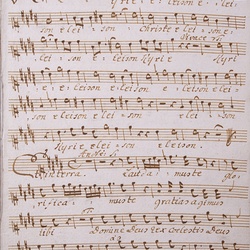 Kyrie eleison elei
son eleison Christe eleison e
leison eleison Kyrie
e e leison eleison elei
son eleison eleison
Kyrie eleison eleison
Et in terra Laudamus te glo
rificamus te gratias agimus
tibi Domine Deus Rex Coelestis Deus